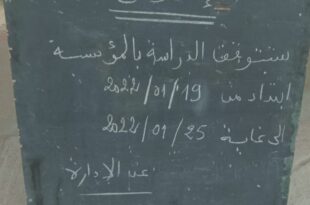 ستتوقف الدراسة بالمؤسسة
ابتداء من 19/01/2022
إلى غاية 25/01/2022
عن الإدارة